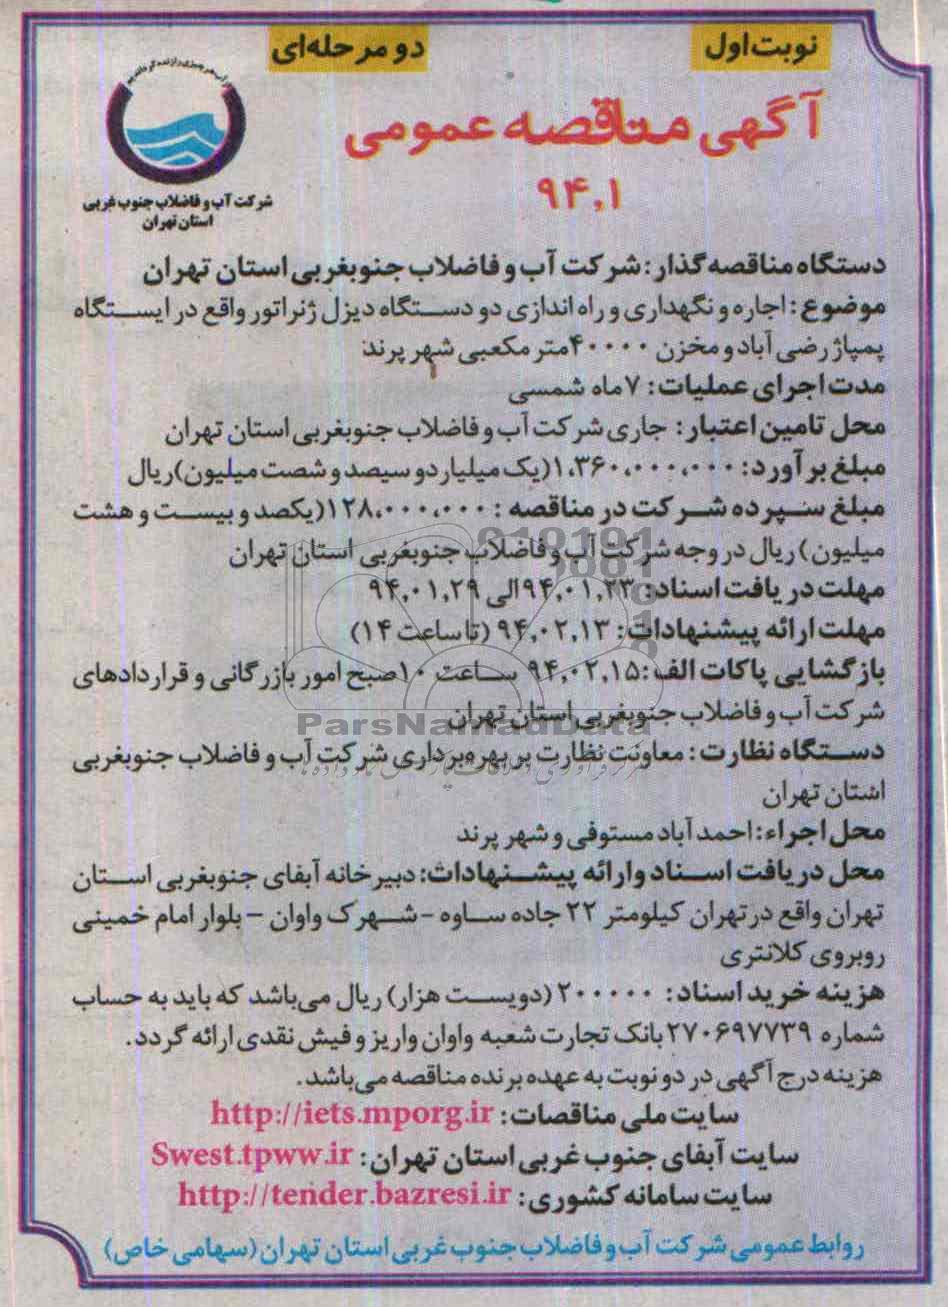 نوبت اول
دو مرحله‌ای
آگهی مناقصه عمومی
۹۴.۱
شرکت آب و فاضلاب جنوب غربی
استان تهران
دستگاه مناقصه گذار: شرکت آب و فاضلاب جنوبغربی استان تهران
موضوع: اجاره و نگهداری و راه اندازی دو دستگاه دیزل ژنراتور واقع در ایستگاه
پمپاژ رضی آباد و مخزن ۴۰۰۰۰ متر مکعبی شهر پرند
مدت اجرای عملیات: ۷ ماه شمسی
محل تامین اعتبار: جاری شرکت آب و فاضلاب جنوبغربی استان تهران
مبلغ برآورد: ۱،۳۶۰،۰۰۰،۰۰۰(یک میلیارد و سیصد و شصت میلیون)ریال
مبلغ سپرده شرکت در مناقصه: ۱۲۸،۰۰۰،۰۰۰(یکصد و بیست و هشت
میلیون) ریال در وجه شرکت آب و فاضلاب جنوبغربی استان تهران
مهلت دریافت اسناد: ۹۴،۰۱،۲۳ الی ۹۴،۰۱،۲۹
مهلت ارائه پیشنهادات: ۹۴،۰۲،۱۳ (تا ساعت ۱۴)
بازگشایی پاکات الف: ۹۴،۰۲،۱۵ ساعت ۱۰ صبح امور بازرگانی و قراردادهای
شرکت آب و فاضلاب جنوبغربی استان تهران
ParsNamadData
دستگاه نظارت: معاونت نظارت بر بهره‌برداری شرکت آب و فاضلاب جنوبغربی
استان تهران
محل اجراء: احمد آباد مستوفی و شهر پرند
محل دریافت اسناد و ارائه پیشنهادات: دبیرخانه آبفای جنوبغربی استان
تهران واقع در تهران کیلومتر ۲۲ جاده ساوه - شهرک واوان - بلوار امام خمینی
روبروی کلانتری
هزینه خرید اسناد: ۲۰۰۰۰۰ (دویست هزار) ریال می‌باشد که باید به حساب
شماره ۲۷۰۶۹۷۷۳۹ بانک تجارت شعبه واوان واریز و فیش نقدی ارائه گردد.
هزینه درج آگهی در دو نوبت به عهده برنده مناقصه می‌باشد.
سایت ملی مناقصات: http://iets.mporg.ir
سایت آبفای جنوب غربی استان تهران: Swest.tpww.ir
سایت سامانه کشوری: http://tender.bazresi.ir
روابط عمومی شرکت آب و فاضلاب جنوب غربی استان تهران (سهامی خاص)